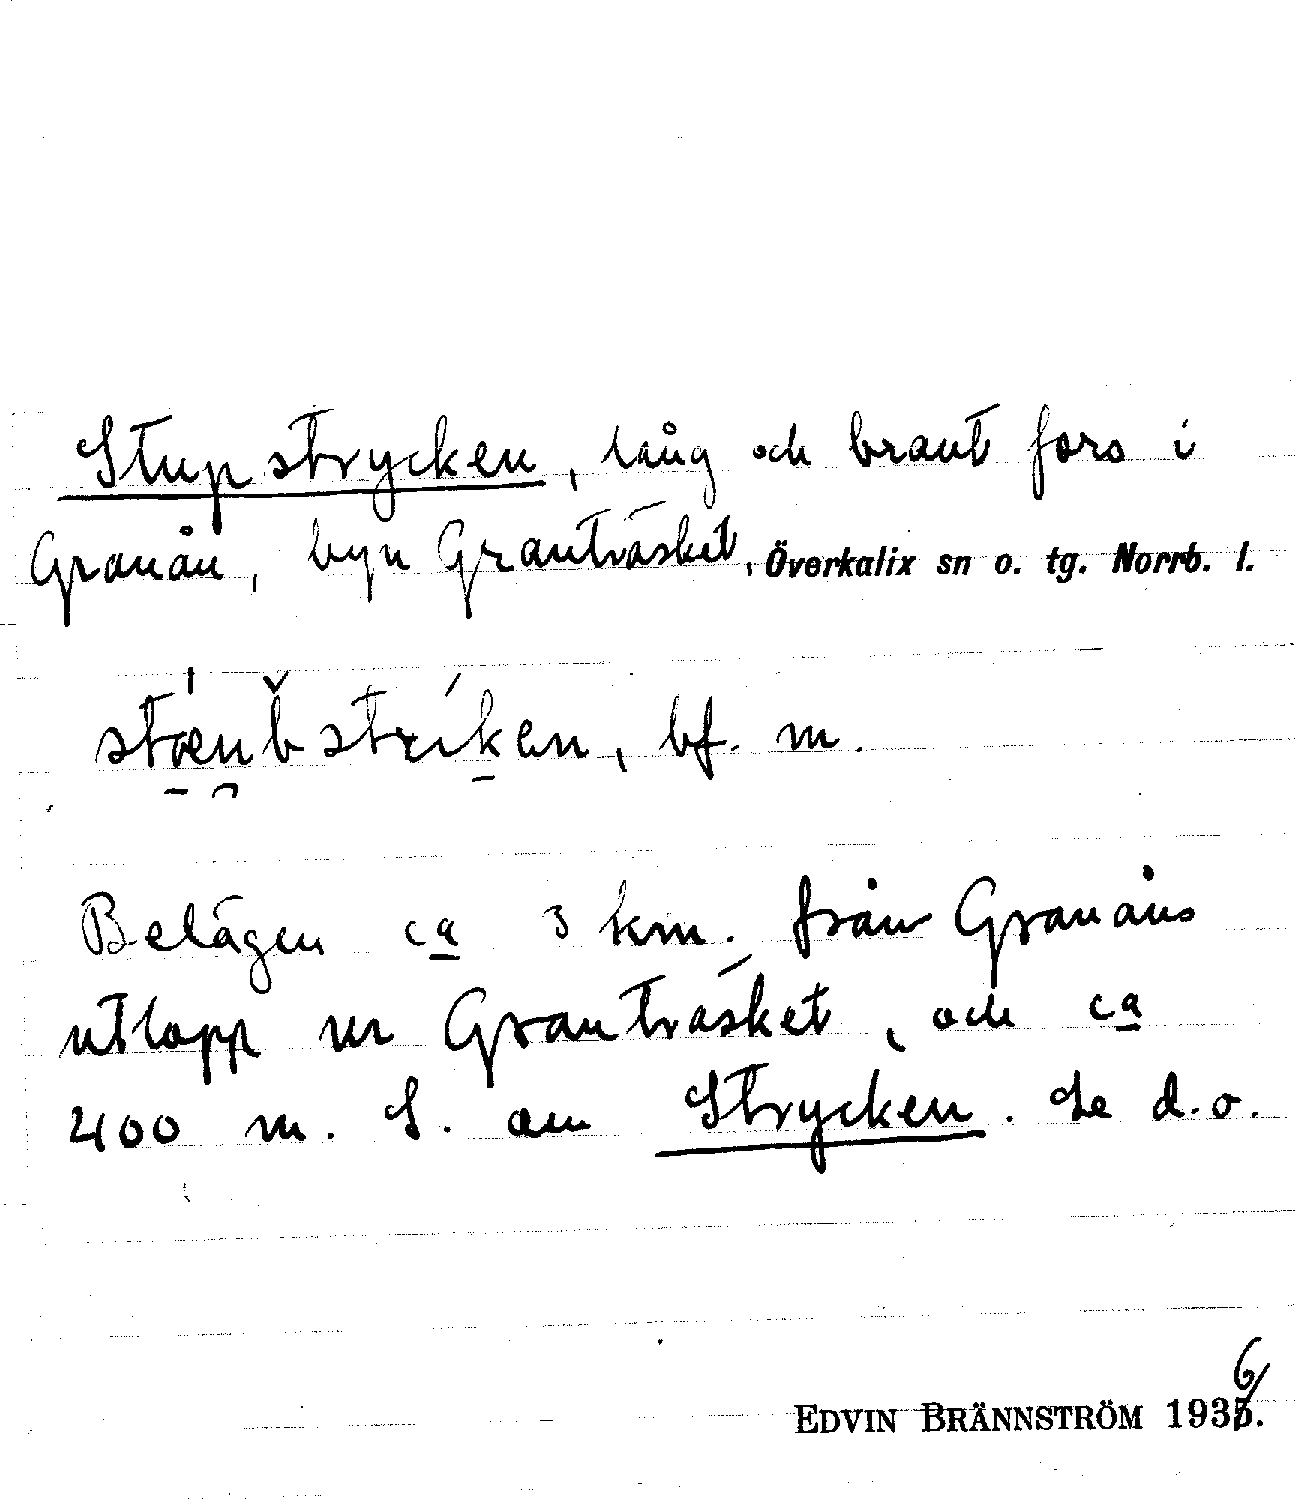 Stupstrycken, lång och brant fors i
Granån, byn Granträsket, Överkalix sn o. tg. Norrb. l.
bf. m.
Belägen ca 3 km. från Granåns
utlopp ur Granträsket, och ca
400 m. S. om Strycken. Se d.o.
EDVIN BRÄNNSTRÖM 1936.